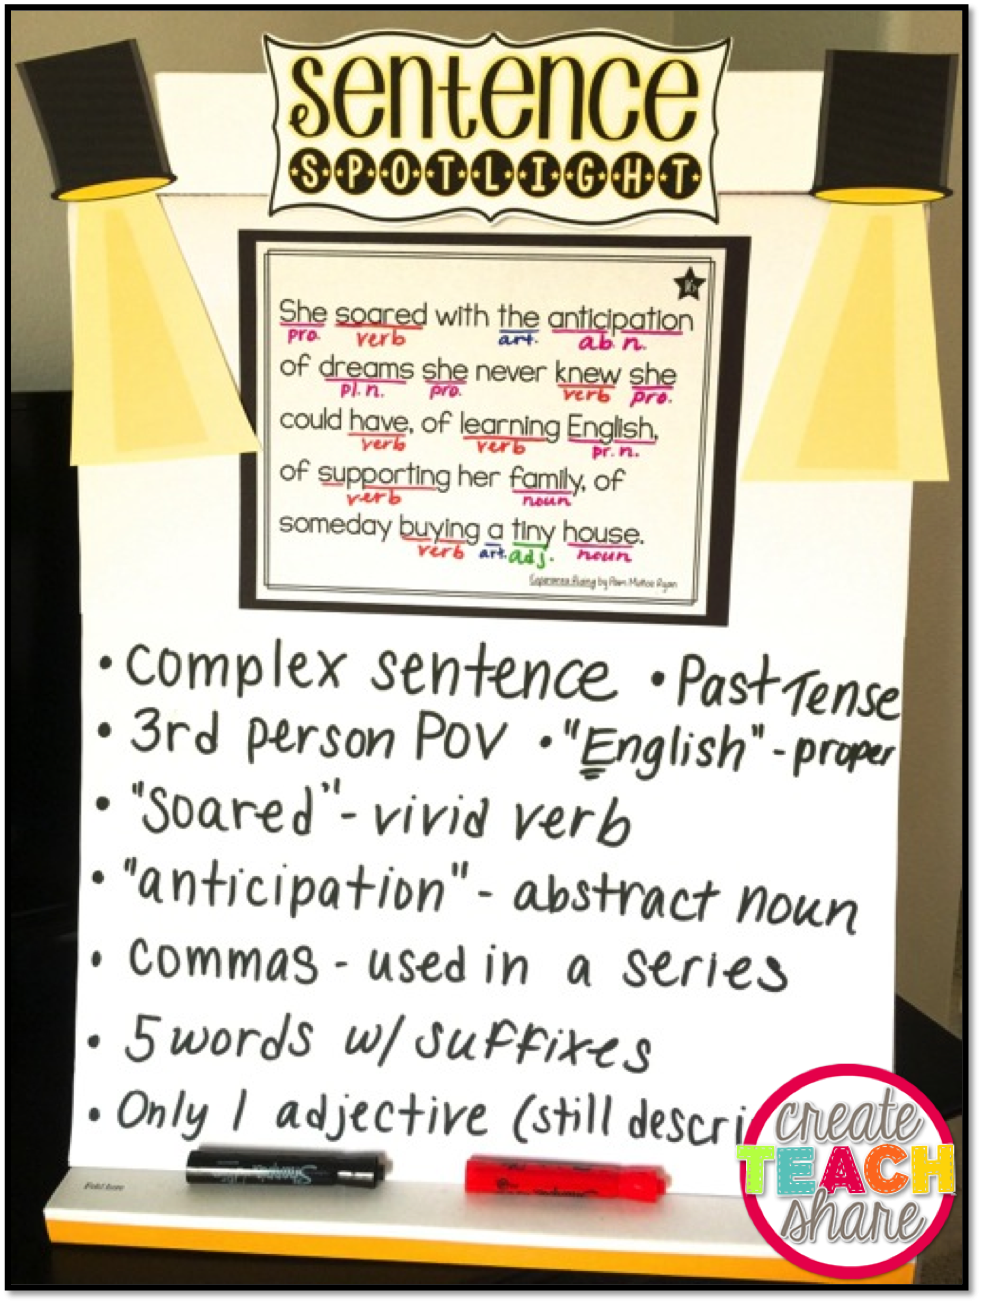 Sentence
SPOTLIGHT
She soared with the anticipation
pro. verb art. ab. n.
of dreams she never knew she
pl. n. pro. verb pro.
could have, of learning English,
verb verb pr. n.
of supporting her family, of
verb noun
someday buying a tiny house.
verb art. adj. noun
Esperanza Rising by Pam Muñoz Ryan
• Complex sentence • Past Tense
• 3rd person POV • "English" - proper
• "Soared" - vivid verb
• "anticipation" - abstract noun
• Commas - used in a series
• 5 words w/ suffixes
• Only 1 adjective (still descri
Sharpie
create
TEACH
share